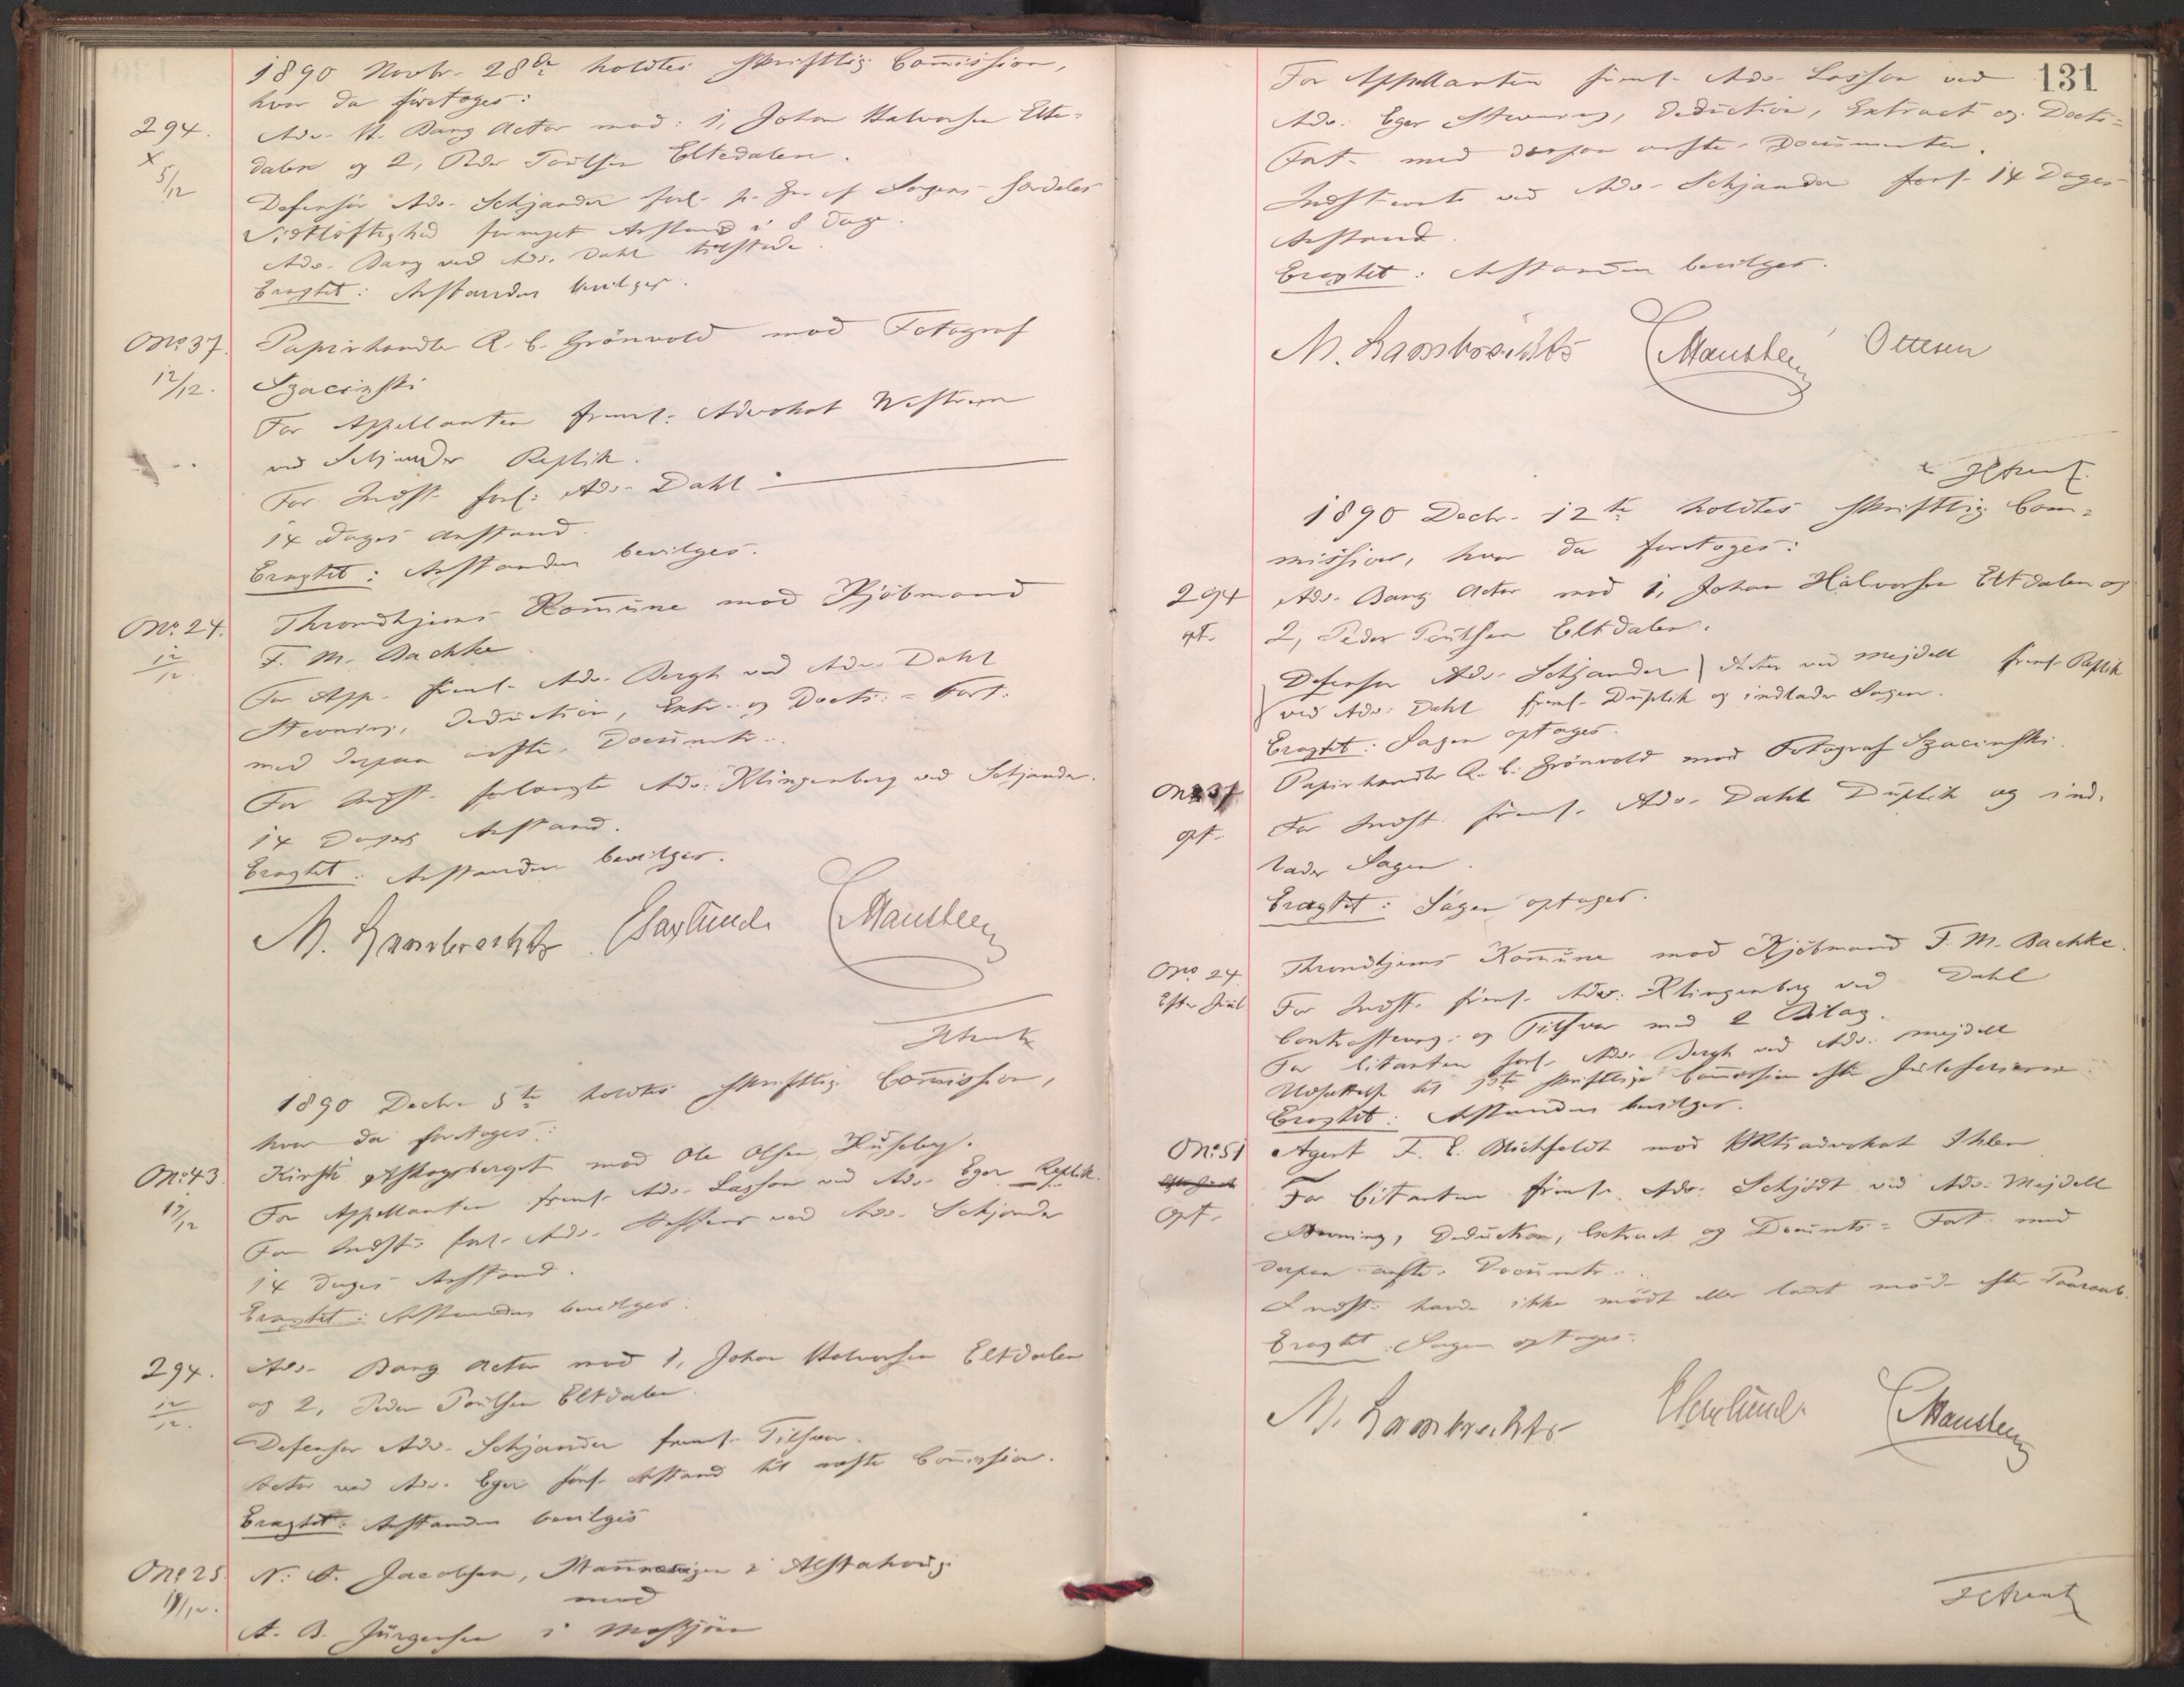 1890 Novbr. 28de holdtes skriftlig Commission,
hvor da foretoges:
294.
Adv. H. Bang Actor mod: 1, Johan Halvorsen Elte-
dalen og 2, Peder Poulsen Eltedalen.
x
5/12
Defensor Adv. Schjander forl. p. Gr. af Sagens særdeles
Vidtløftighed fornyet Anstand i 8 Dage.
Adv. Bang ved Adv. Dahl tilstede.
Eragtet: Anstanden bevilges.
No. 37.
Papirhandler R. C. Grönvold mod Fotograf
12/12.
Szacinski
For Appellanten freml. Advokat Westrum
ved Schjander Replik.
For Indst. forl. Adv. Dahl
14 Dages Anstand.
Eragtet: Anstanden bevilges.
No. 24.
Throndhjems Kommune mod Kjöbmand
12/12.
F. M. Bachke.
For App. freml. Adv. Bergh ved Adv. Dahl
Stevning, Deduction, Extr. og Docts. = Fort.
med derpaa anfte. Documenter.
For Indst. forlangte Adv. Klingenberg ved Schjander
14 Dages Anstand.
Eragtet: Anstanden bevilges.
M. Lambrechts
1890 Decbr. 5te holdtes skriftlig Commission,
hvor da foretoges:
No. 43.
Kirsti Askogsberget mod Ole Olsen Huseby.
19/12
For Appellanten freml. Adv. Lasson ved Adv. Eger Replik.
For Indst. forl. Adv. ved Adv. Schjander
14 Dages Anstand.
Eragtet: Anstanden bevilges.
294.
Adv. Bang Actor mod 1, Johan Halvorsen Eltdalen
12/12.
og 2, Peder Poulsen Eltdalen.
Defensor Adv. Schjander freml. Tilsvar.
Actor ved Adv. Eger forl. Anstand til næste Commission.
Eragtet: Anstanden bevilges
No. 25.
N. Jacobsen, i Alstahoug
19/12.
mod
A. B. Jürgensen i Mosjöen
131
For Appellanten freml. Adv. Lasson ved
Adv. Eger Stevning, Deduction, Extract og Docts.=
Fort. med derpaa anfte. Documenter.
Indstevnte ved Adv. Schjander forl. 14 Dages
Anstand.
Eragtet: Anstanden bevilges.
M. Lambrechts Ottesen
1890 Decbr. 12te holdtes skriftlig Com-
mission, hvor da foretoges:
294
Adv. Bang Actor mod 1, Johan Halvorsen Eltdalen og
opt.
2, Peder Poulsen Eltdalen.
Defensor Adv. Schjander Actor ved Mejdell freml. Replik
ved Adv. Dahl freml. Duplik og indlader Sagen.
Eragtet: Sagen optages.
No. 37
Papirhandler R. C. Grönvold mod Fotograf Szacinski.
opt.
For Indst. freml. Adv. Dahl Duplik og ind-
lader Sagen.
Eragtet: Sagen optages.
No. 24
Throndhjems Kommune mod Kjöbmand F. M. Bachke.
Efter Juul
For Indst. freml. Adv. Klingenberg ved Dahl
Contrastevng. og Tilsvar med 2 Bilag.
For Citanten forl. Adv. Bergh ved Adv. Mejdell
Udsættelse til 1ste skriftlige Commission efter Juleferierne.
Eragtet: Anstanden bevilges.
No. 51
Agent F. E. Blichfeldt mod KRtsadvokat Ihlen
Efter Juul
opt.
For Citanten freml. Adv. Schjödt ved Adv. Mejdell
Stevning, Deduction, Extract og Documts = Fort. med
derpaa anfte. Documtr.
Indst. havde ikke mödt eller ladet möde efter Paaraab.
Eragtet: Sagen optages.
M. Lambrechts